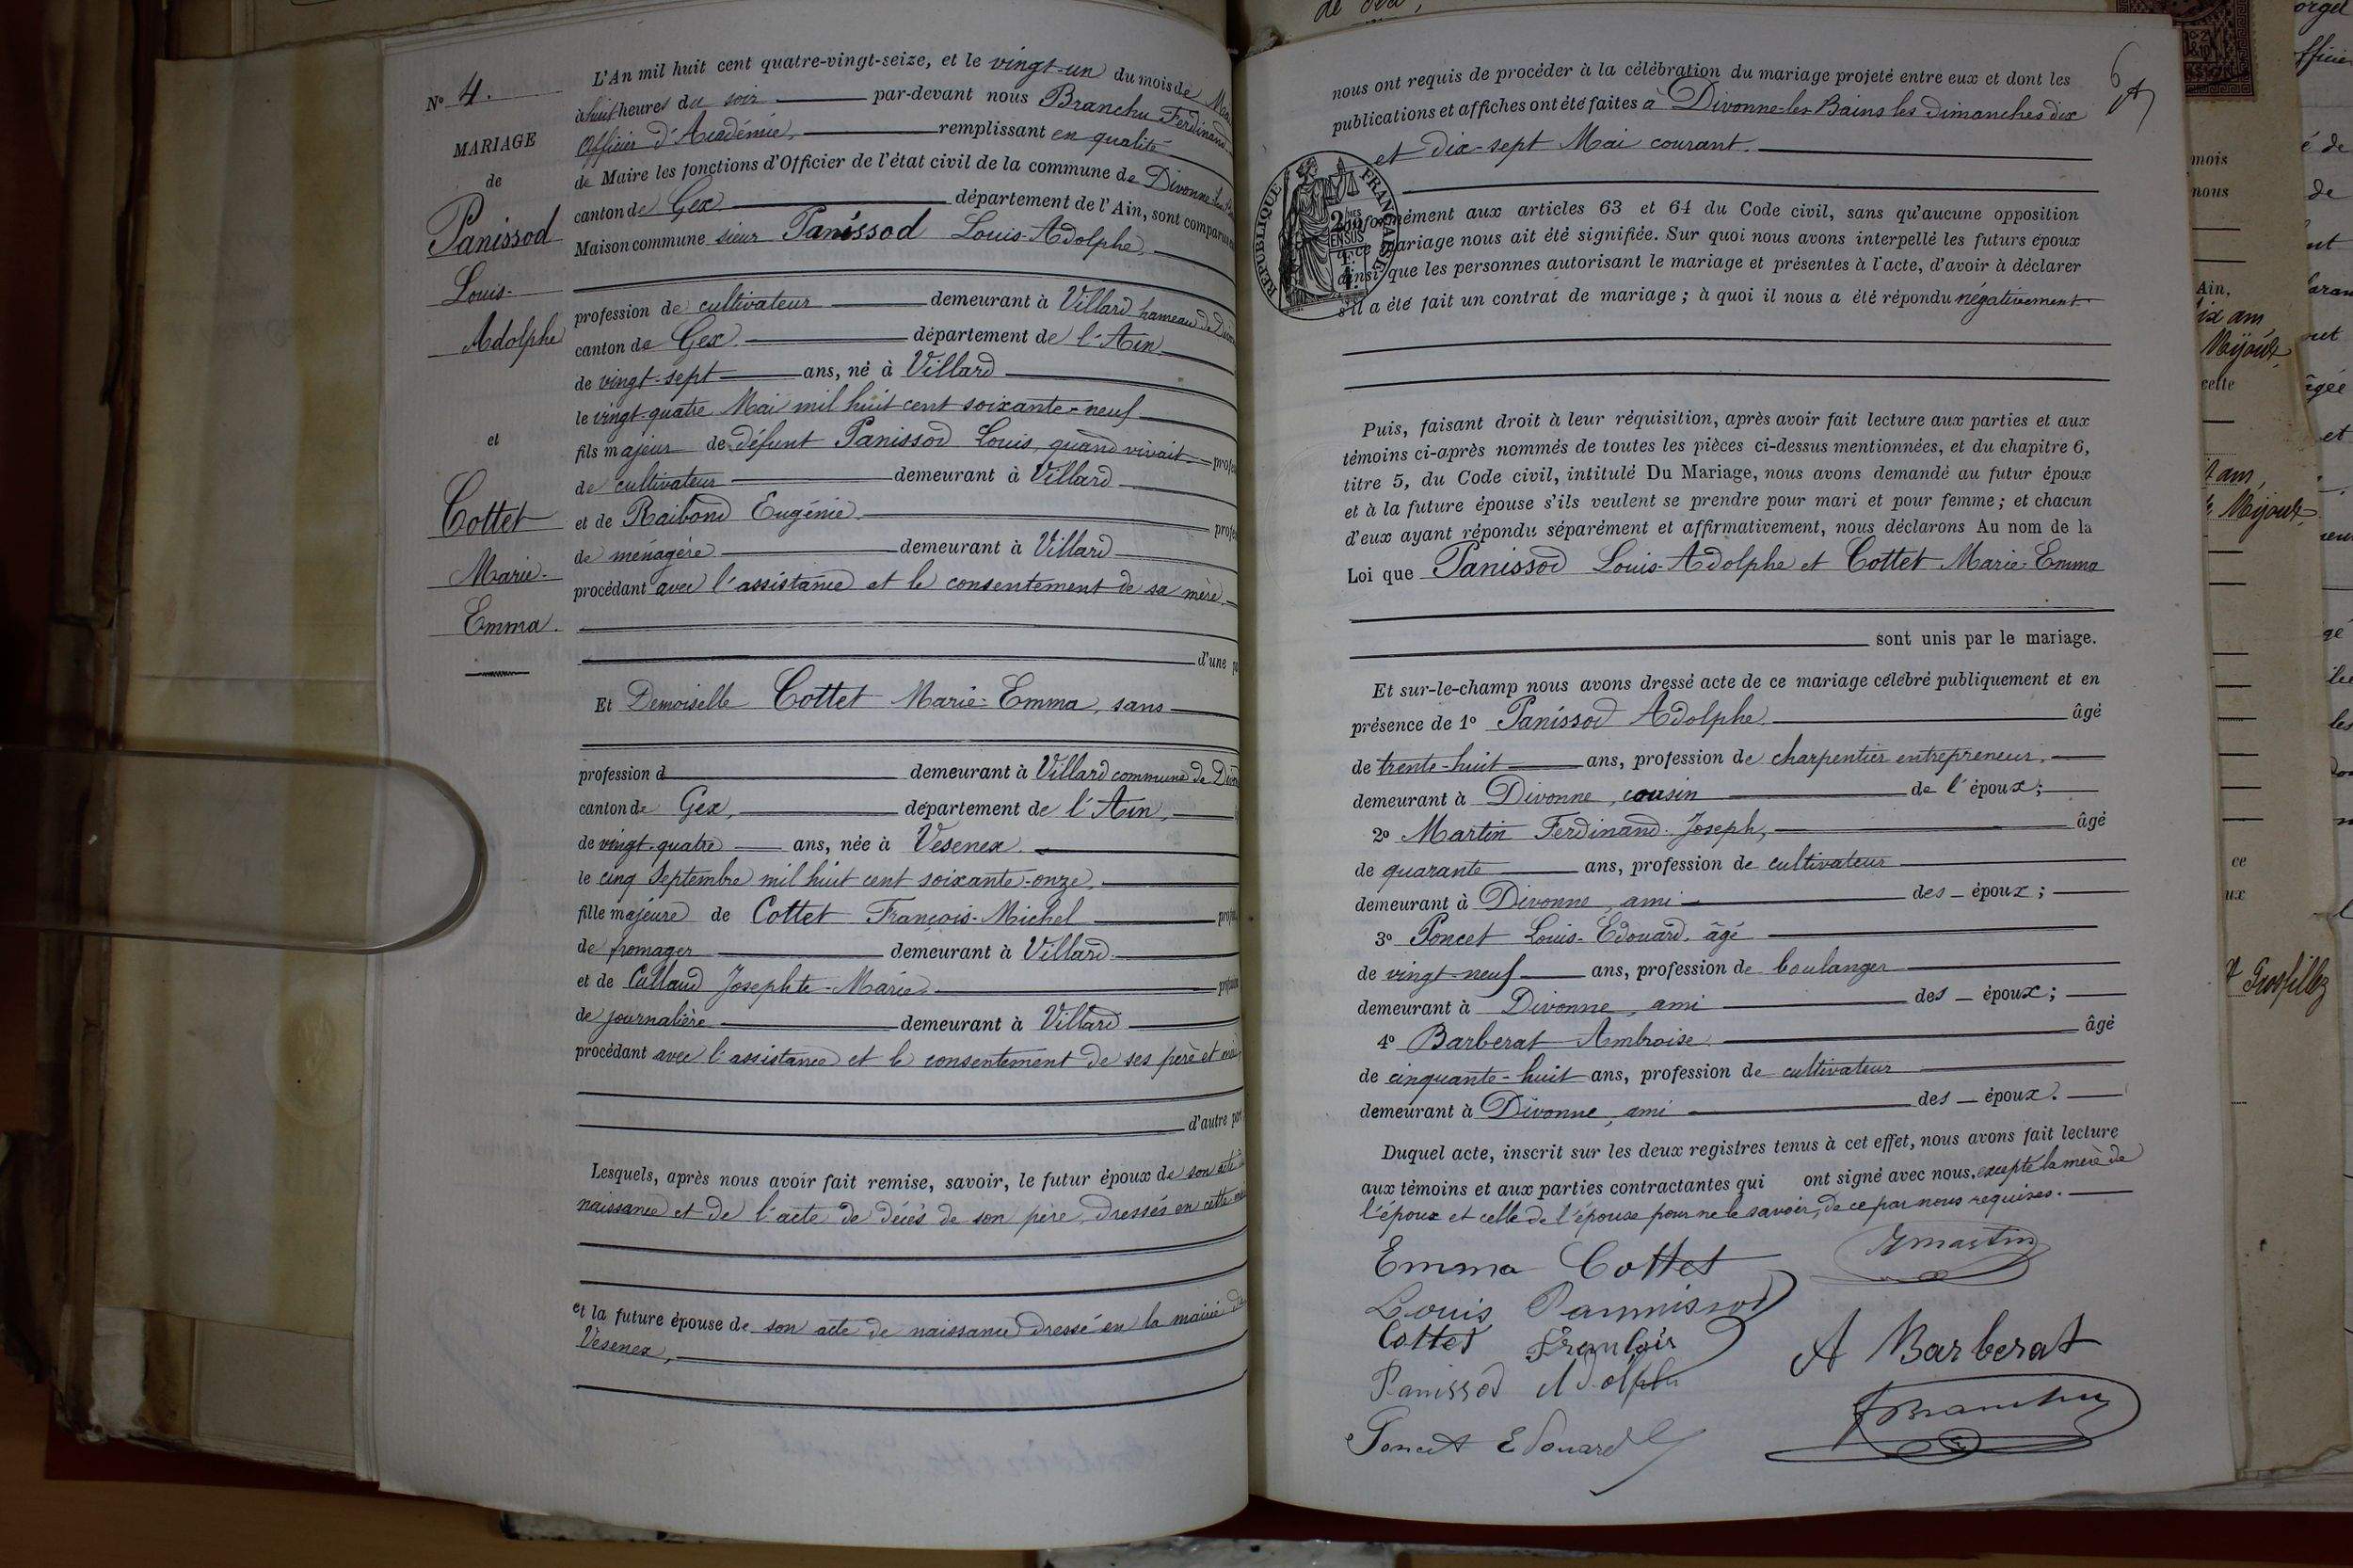 N° 4.
MARIAGE
de
Panissod
Louis-
Adolphe
et
Cottet
Marie-
Emma.
L'An mil huit cent quatre-vingt-seize, et le vingt-un du mois de
à huit heures du soir par-devant nous Branchu Ferdinand
Officier d'Académie, remplissant en qualité
de Maire les fonctions d'Officier de l'état civil de la commune de Divonne
canton de Gex département de l'Ain, sont comparus
Maison commune sieur Panissod Louis-Adolphe,
profession de cultivateur demeurant à Villard hameau de
canton de Gex. département de l'Ain
de vingt-sept ans, né à Villard
le vingt-quatre Mai mil huit cent soixante-neuf
fils majeur de défunt Panissod Louis, quand vivait
de cultivateur demeurant à Villard
et de Raibond Eugénie.
de ménagère demeurant à Villard
procédant avec l'assistance et le consentement de sa mère.
d'une
Et Demoiselle Cottet Marie-Emma, sans
profession d demeurant à Villard commune de
canton de Gex, département de l'Ain,
de vingt-quatre ans, née à Vesenex.
le cinq Septembre mil huit cent soixante-onze,
fille majeure de Cottet François-Michel
de fromager demeurant à Villard.
et de Cullaud Josephte-Marie
de journalière demeurant à Villard
procédant avec l'assistance et le consentement de ses père et
d'autre
Lesquels, après nous avoir fait remise, savoir, le futur époux de son acte
naissance et de l'acte de décès de son père, dressés en cette
et la future épouse de son acte de naissance dressé en la mairie de
Vesenex,
6
nous ont requis de procéder à la célébration du mariage projeté entre eux et dont les
publications et affiches ont été faites à Divonne-les-Bains les dimanches dix
et dix-sept Mai courant.
REPUBLIQUE FRANÇAISE
2/10mes EN SUS
conformément aux articles 63 et 64 du Code civil, sans qu'aucune opposition
ce mariage nous ait été signifiée. Sur quoi nous avons interpellé les futurs époux
ainsi que les personnes autorisant le mariage et présentes à l'acte, d'avoir à déclarer
s'il a été fait un contrat de mariage ; à quoi il nous a été répondu négativement
Puis, faisant droit à leur réquisition, après avoir fait lecture aux parties et aux
témoins ci-après nommés de toutes les pièces ci-dessus mentionnées, et du chapitre 6,
titre 5, du Code civil, intitulé Du Mariage, nous avons demandé au futur époux
et à la future épouse s'ils veulent se prendre pour mari et pour femme ; et chacun
d'eux ayant répondu séparément et affirmativement, nous déclarons Au nom de la
Loi que Panissod Louis-Adolphe et Cottet Marie-Emma
sont unis par le mariage.
Et sur-le-champ nous avons dressé acte de ce mariage célébré publiquement et en
présence de 1° Panissod Adolphe âgé
de trente-huit ans, profession de charpentier entrepreneur,
demeurant à Divonne, cousin de l'époux ;
2° Martin Ferdinand-Joseph, âgé
de quarante ans, profession de cultivateur
demeurant à Divonne, ami des époux ;
3° Poncet Louis-Edouard, âgé
de vingt-neuf ans, profession de boulanger
demeurant à Divonne, ami des époux ;
4° Barberat Ambroise. âgé
de cinquante-huit ans, profession de cultivateur
demeurant à Divonne, ami des époux.
Duquel acte, inscrit sur les deux registres tenus à cet effet, nous avons fait lecture
aux témoins et aux parties contractantes qui ont signé avec nous, excepté la mère de
l'époux et celle de l'épouse pour ne le savoir, de ce par nous requises.
Emma Cottet
Martin
Louis Pannissod
Cottet François
A Barberat
Panissod Adolphe
Branchu
Poncet Edouard
mois
nous
Ain,
Mijoux,
celle
Mijoux,
ce
ux
Grosfillez